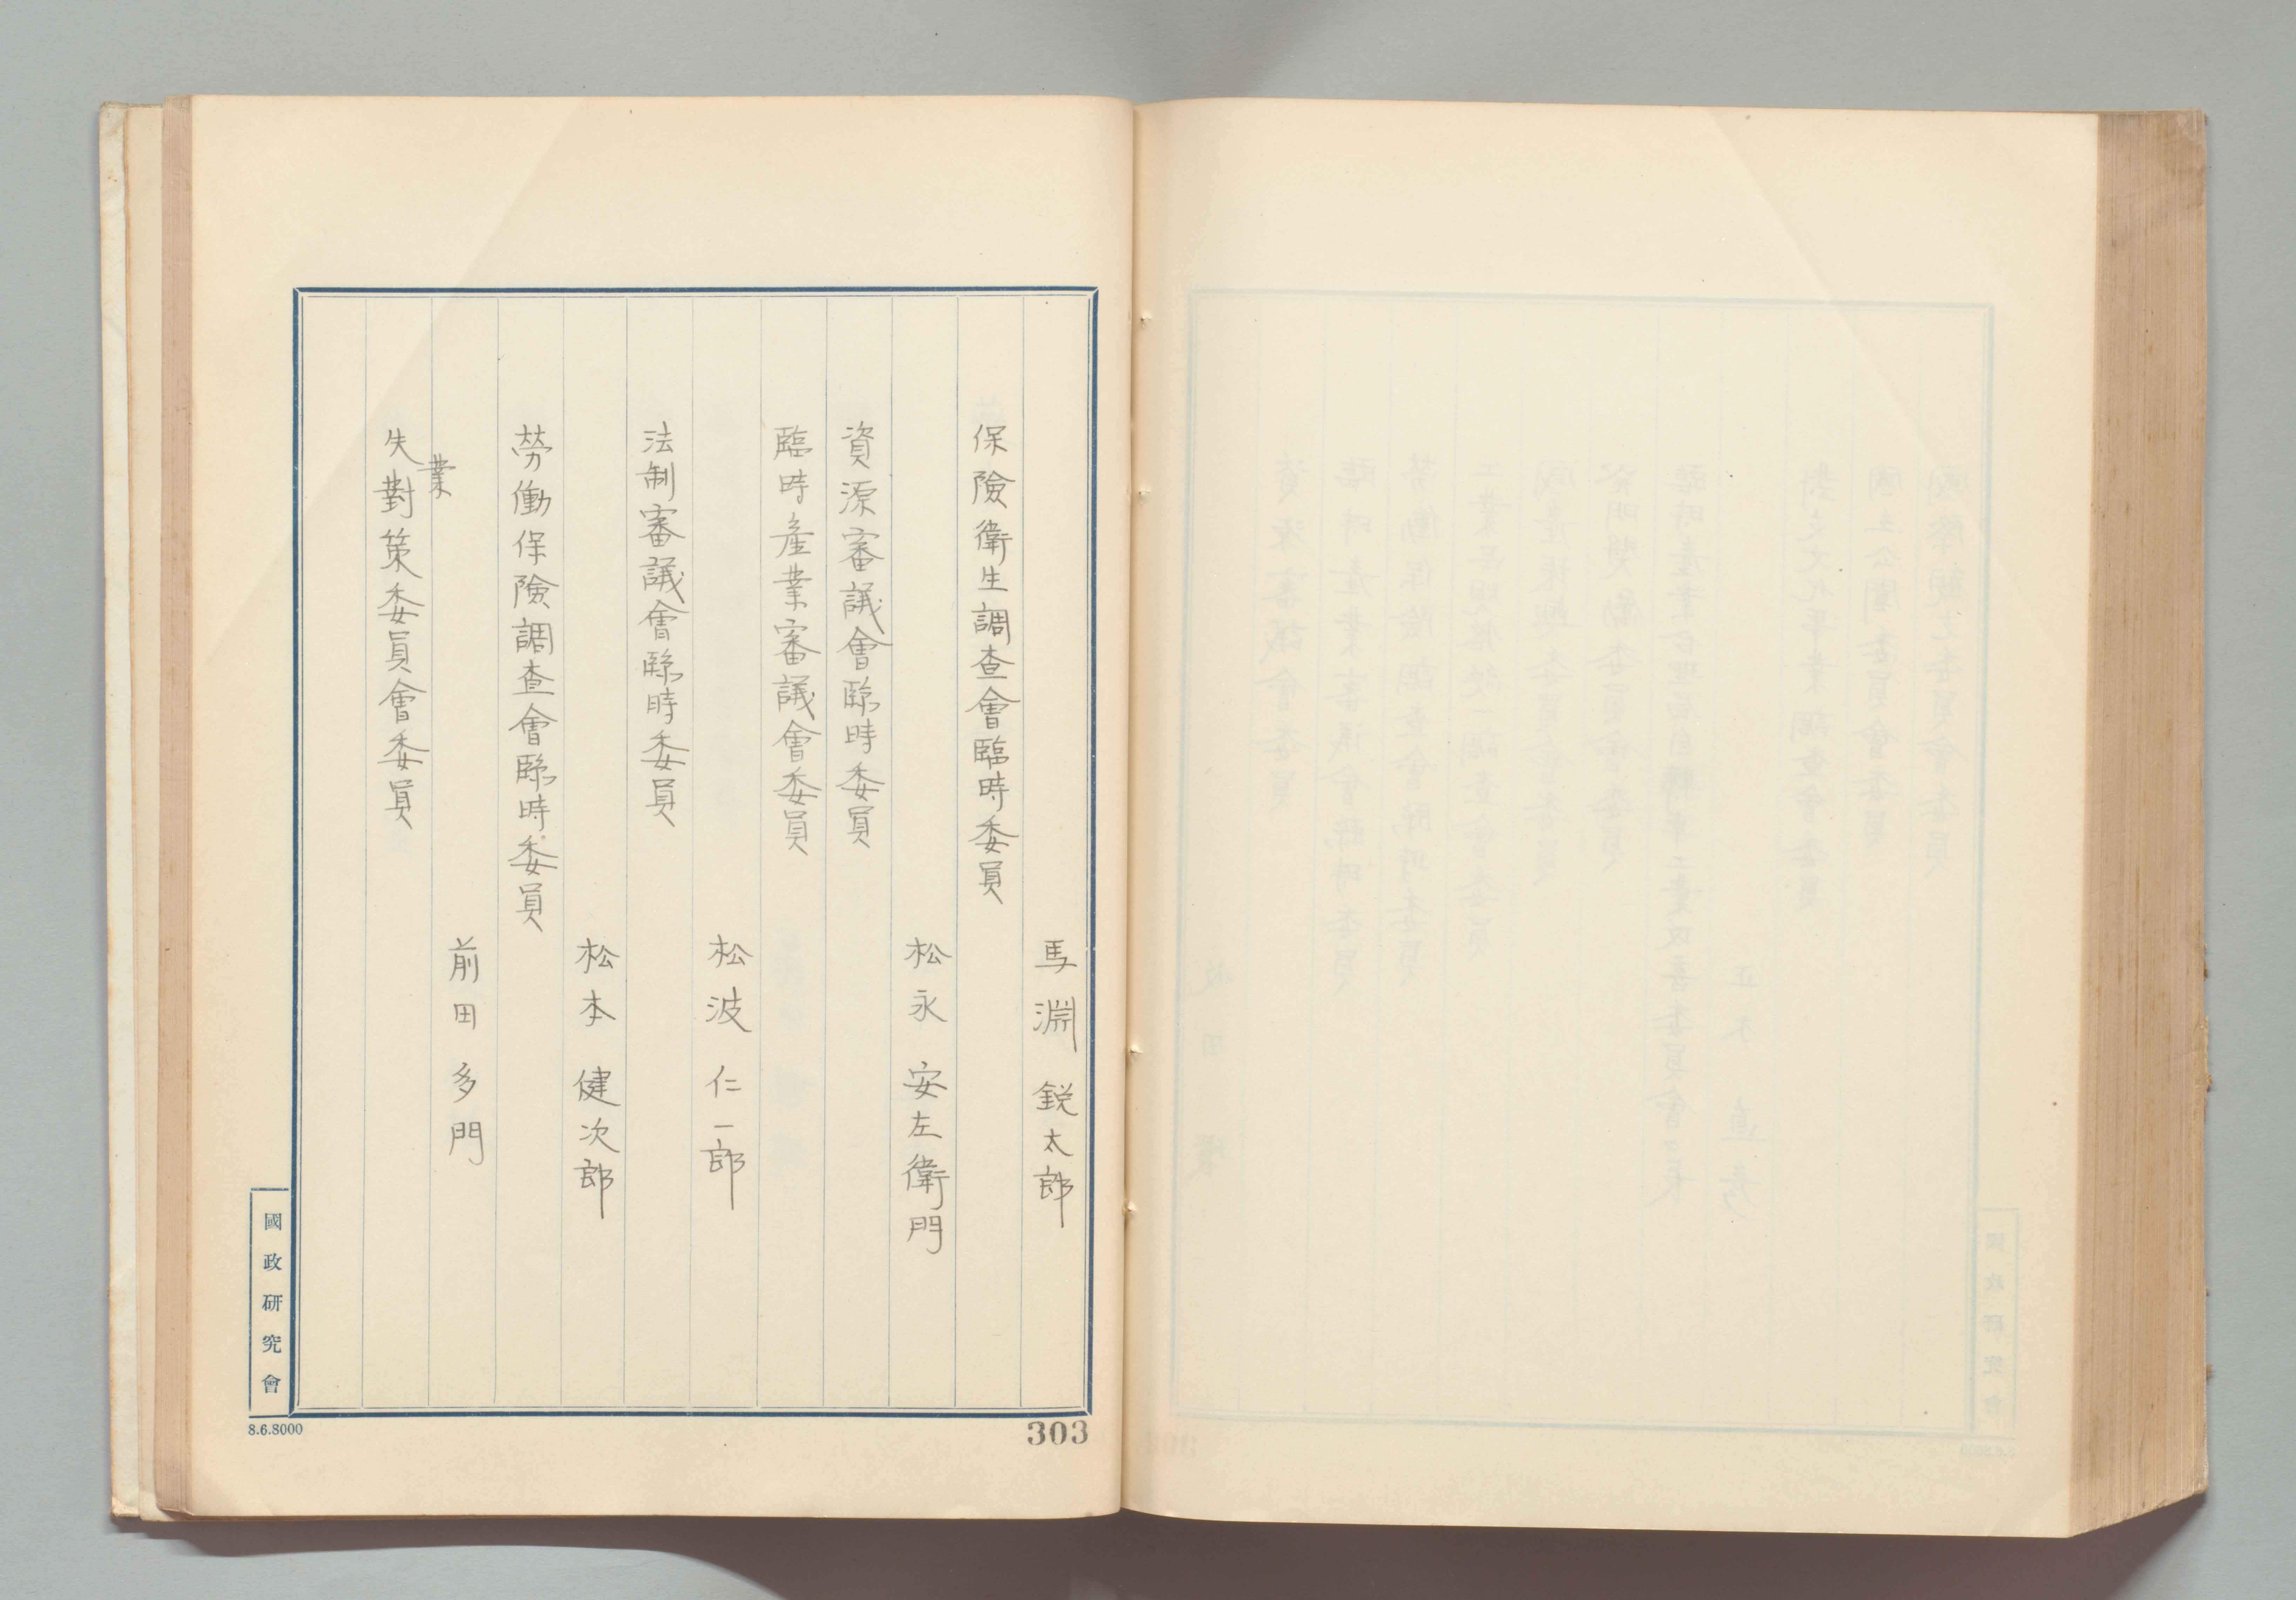 馬淵鋭太郎
保險衛生調査會臨時委員
松永安左衛門
資源審議會臨時委員
臨時產業審議會委員
松波仁一郎
法制審議會臨時委員
松本健次郎
勞働保險調査會臨時委員
前田多門
失業對策委員會委員
國政研究會
8.6.8000
303